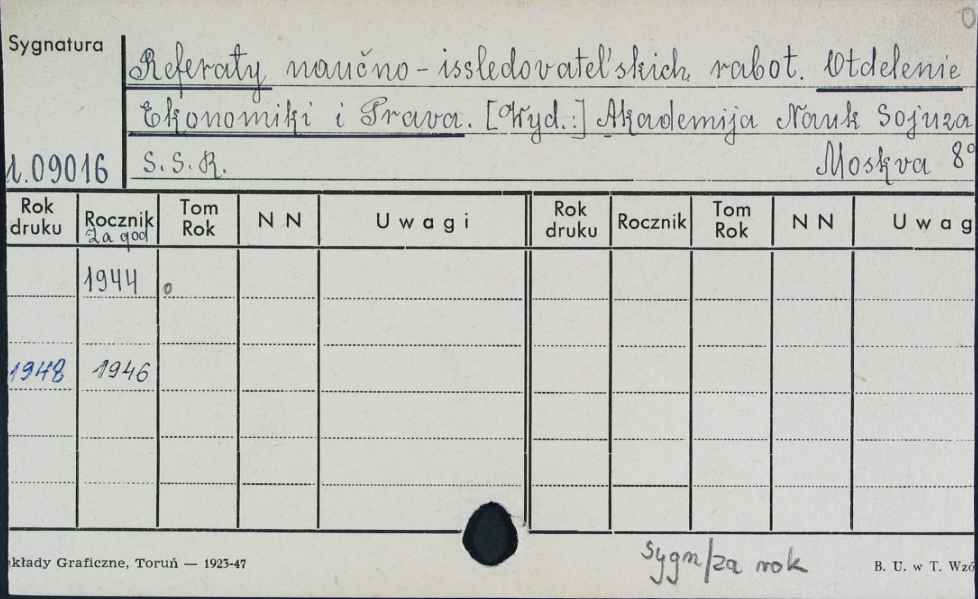 Sygnatura
Referaty naučno-issledovatel'skich rabot. Otdelenie
Ekonomiki i Prava. [Wyd.:] Akademija Nauk Sojuza
1.09016 S.S.R. Moskva 8°
Rok druku Rocznik Tom Rok N N Uwagi Rok druku Rocznik Tom Rok N N Uwag
za god
1944
1948 1946
kłady Graficzne, Toruń — 1923-47
sygn/za rok
B. U. w T. Wzó